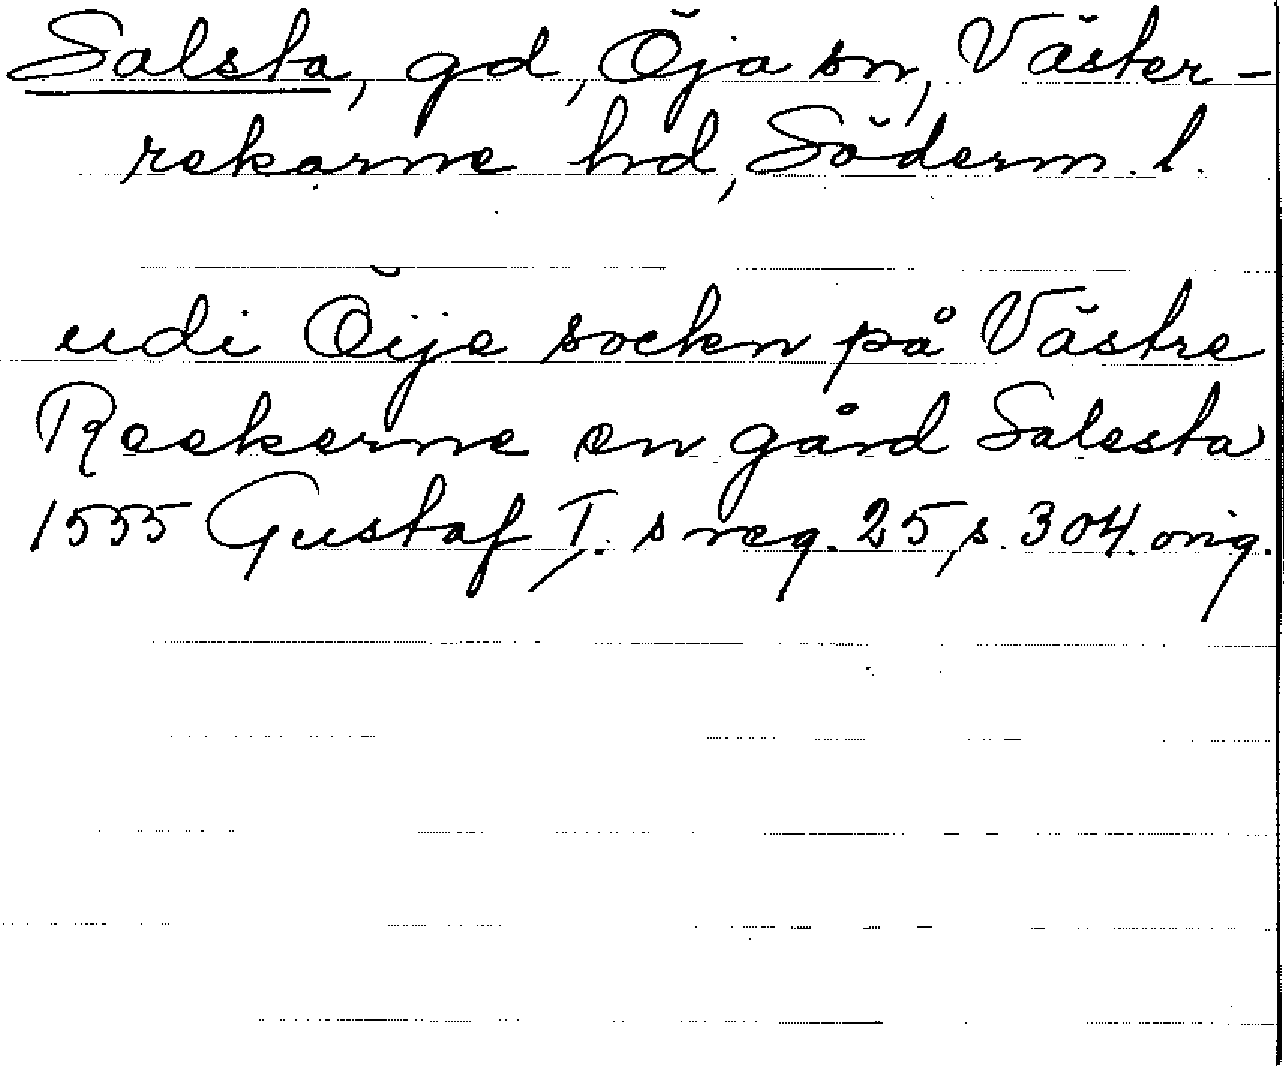 Salsta, gd, Öja sn, Väster-
rekarne hd, Söderm. l.
udi Öije sockn på Västre
Reekerne en gård Salesta
1555 Gustaf I.s reg. 25, s. 304. orig.